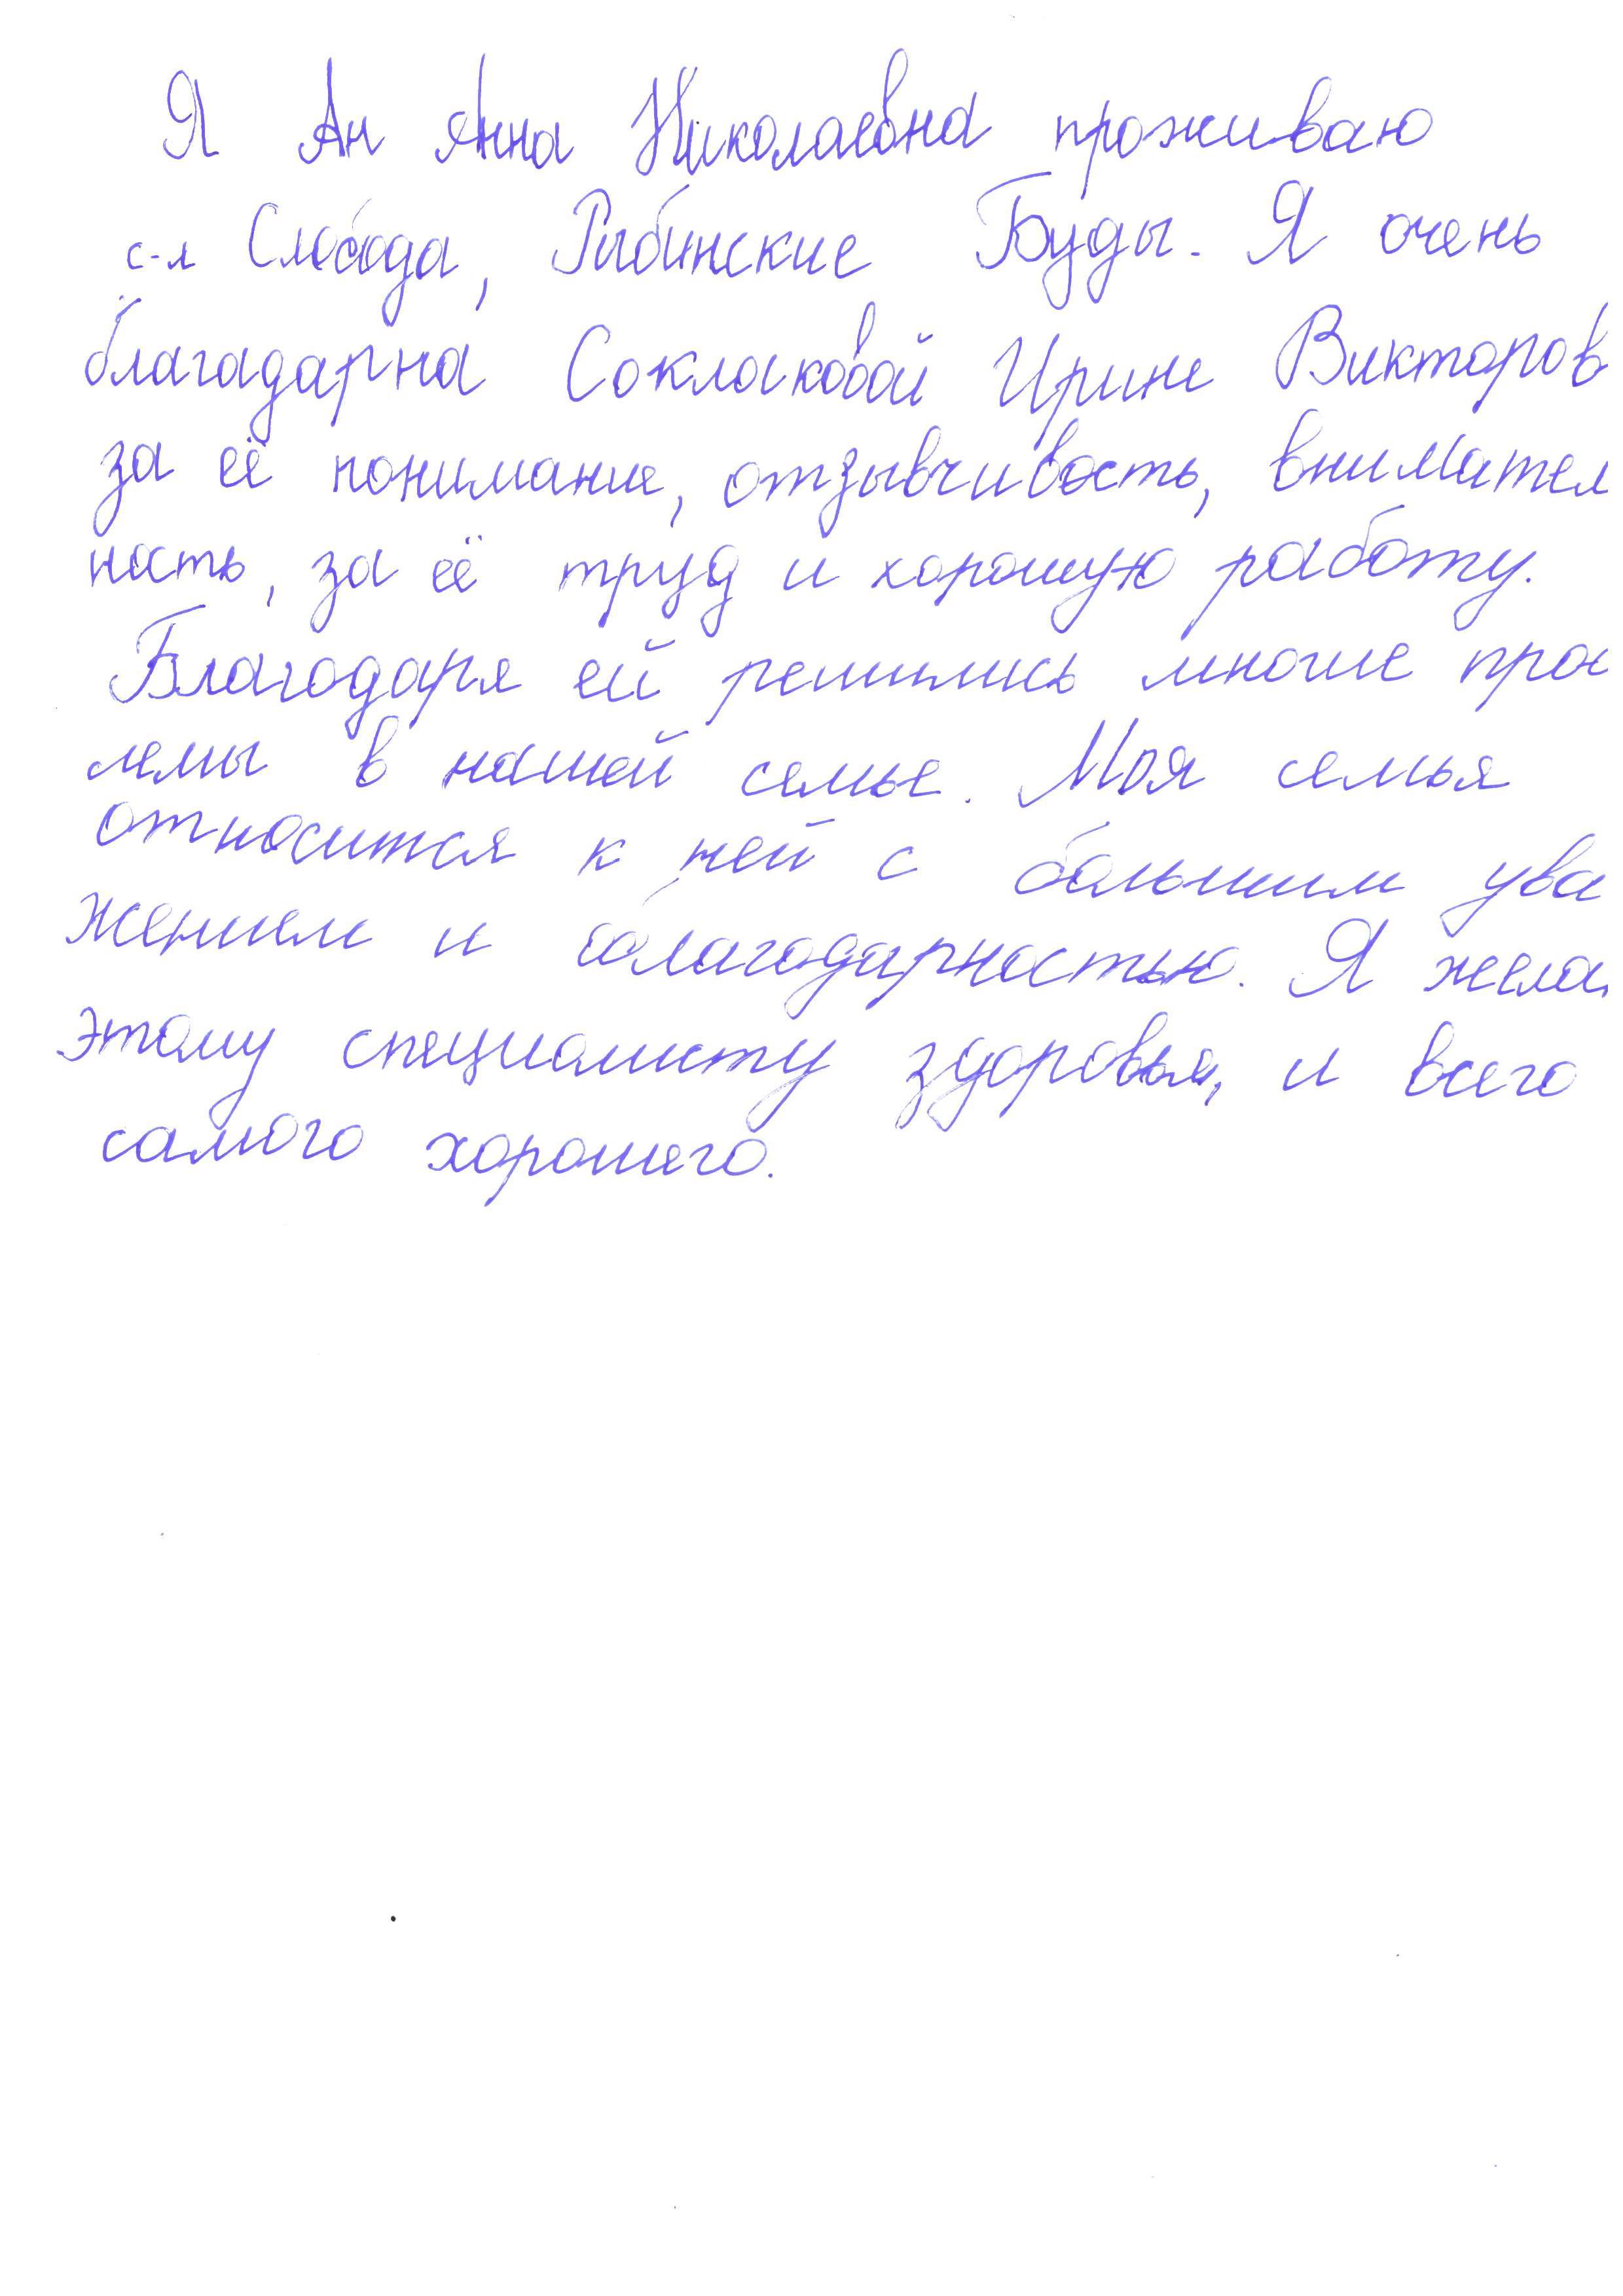 Я Ан Анна Николаевна проживаю
с-л Слобода, Рыбинские Буды. Я очень
благадарна Соклаковой Ирине Викторов
за её понимание, отзывчивость, внимател
ность, за её труд и хорошую работу.
Благодаря ей решились многие проб
лемы в нашей семье. Моя семья
относится к ней с большим ува
жением и благодарностью. Я жела
этому специалисту здоровья, и всего
самого хорошего.